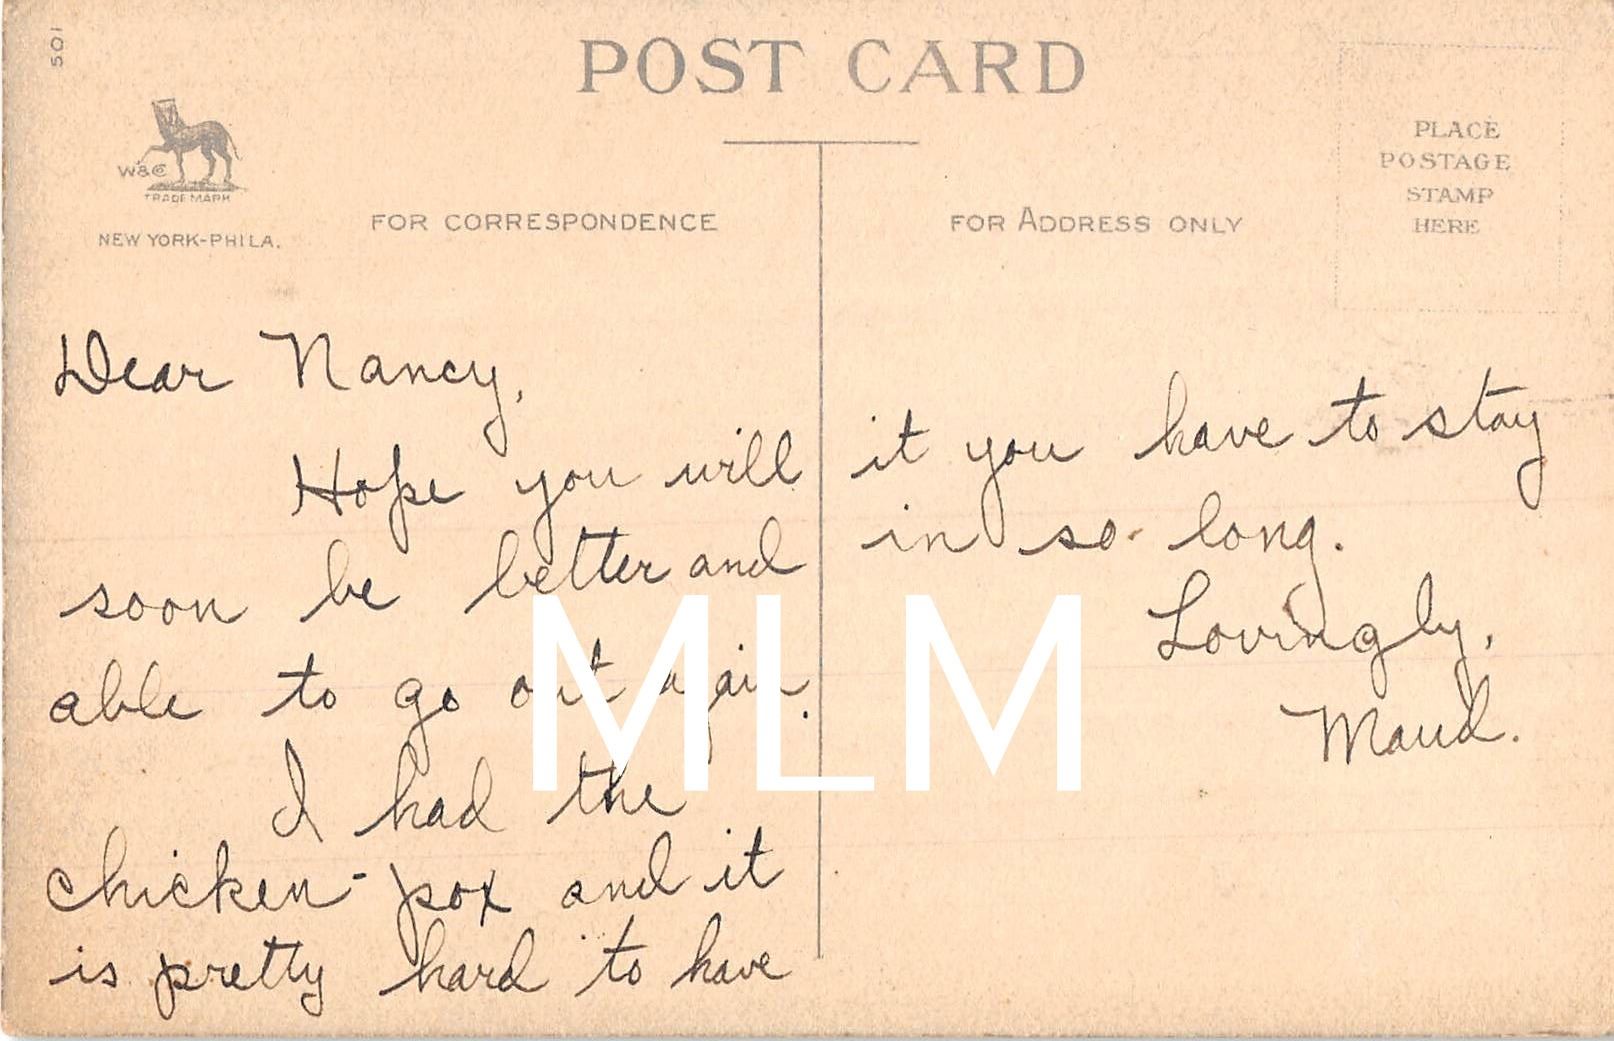 501
POST CARD
W&Co
TRADE MARK
NEW YORK-PHILA.
FOR CORRESPONDENCE
FOR ADDRESS ONLY
PLACE
POSTAGE
STAMP
HERE
Dear Nancy,
Hope you will
soon be better and
able to go out again.
I had the
chicken-pox and it
is pretty hard to have
it you have to stay
in so long.
Lovingly,
Maud.
MLM